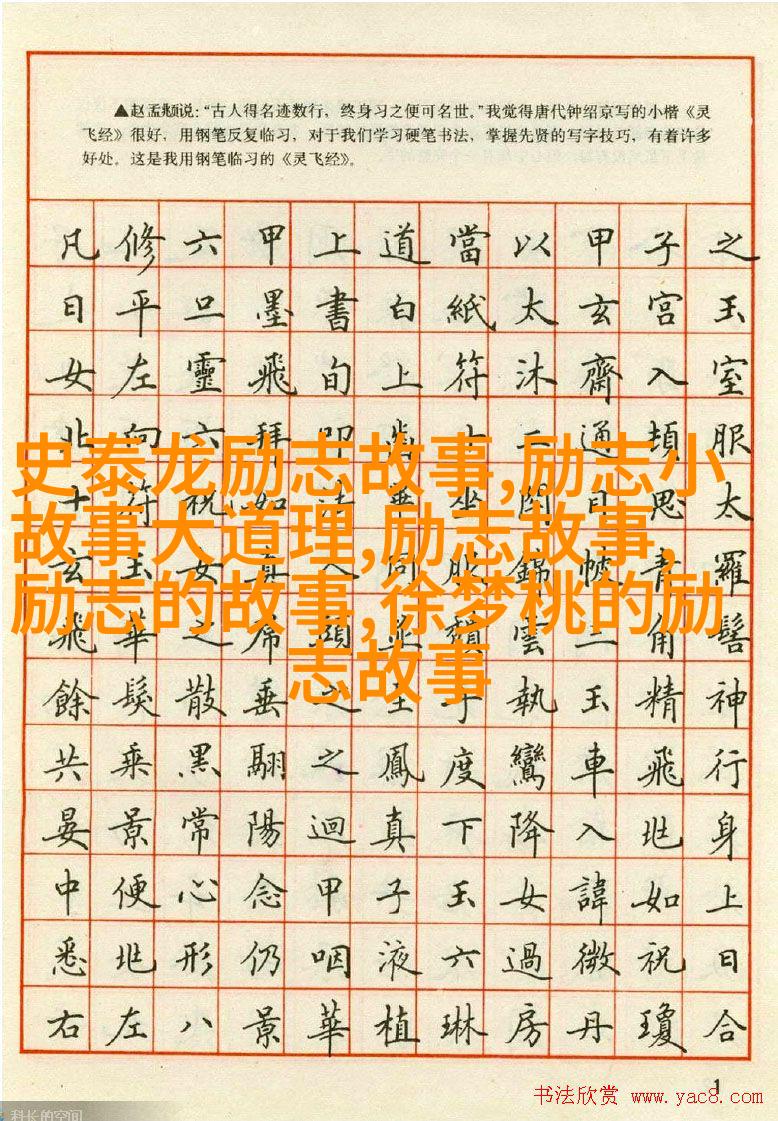 ▲赵孟頫说:“古人得名迹数行，终身习之便可名世。”我觉得唐代钟绍京写的小楷《灵
飞经》很好，用钢笔反复临习，对于我们学习硬笔书法，掌握先贤的写字技巧，有着许多
好处。这是我用钢笔临习的《灵飞经》。
凡修六甲上道當以甲子之
日平旦墨書白紙太玄宮玉
女左靈飛旬上符沐齋入室
北向六拜叩齒十二通頓服
史泰龙励志故事,励志小
十符祝如法畢坐閉目思太
故事大道理,励志故事,
玄玉女真人同服錦帔青羅
励志的故事,徐梦桃的励
飛華之帬頭並頹雲三角髻
志故事
餘髮散垂之至于執玉精神
共乘黑翮之鳳度鸞車飛行
晏景常陽迴真下降入兆身
中便心念甲子玉女諱如上
悉兆形仍咽液六過微祝日
右左八景華植琳房丹瓊合
1
书法欣赏 www.yac8.com
科长的空间